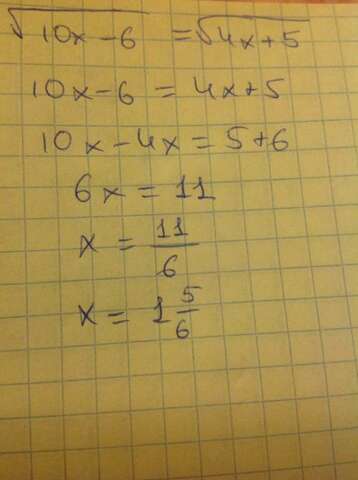 √10x-6 = √4x+5
10x-6 = 4x+5
10x-4x = 5+6
6x = 11
x = 11/6
x = 1 5/6